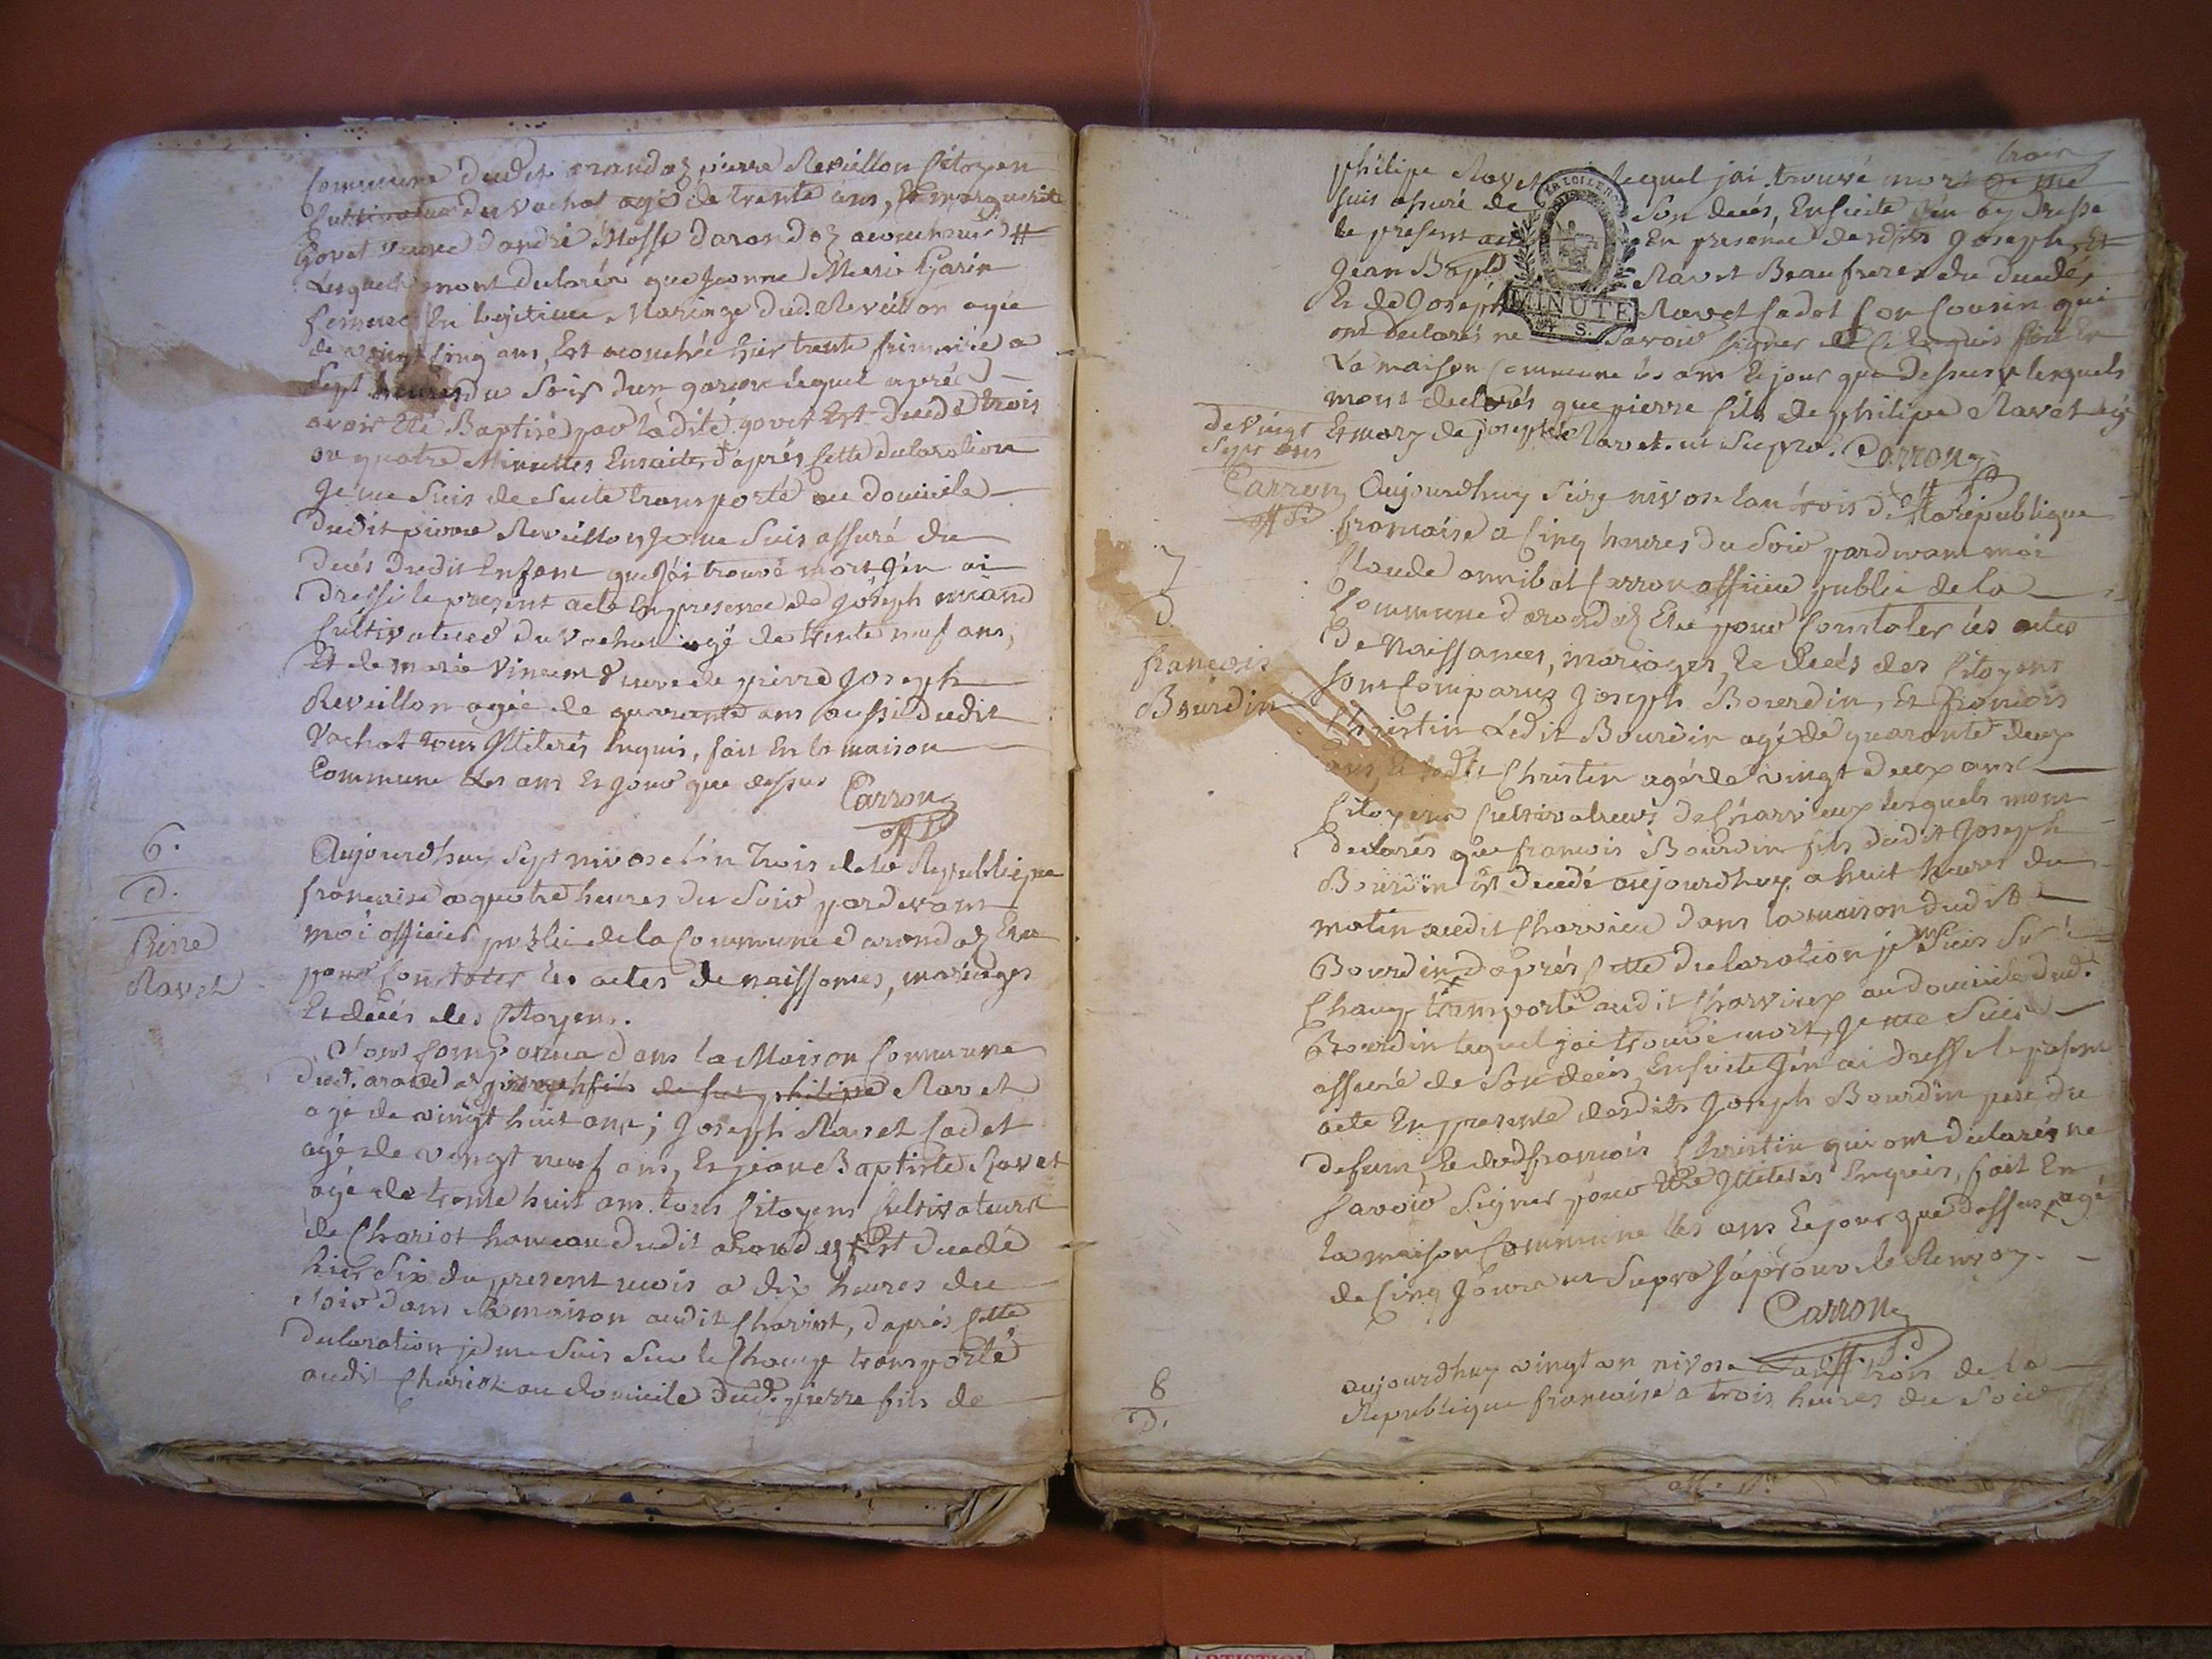 Commune dudit arandaz pierre Reveillon Citoyen
Cultivateur du vachat agé de trente ans, Et marguerite
Govet veuve dandré Mosse darandaz acoucheuse #
Lesquels mont declarés que Jeanne Marie Garin
femme En legitime Mariage dud. Reveillon agée
de vingt cinq ans, Est acouchée hier trente frimaire a
Sept heures du Soir dun garson lequel aprés
avoir Eté Baptisé par ladite govet Est decedé trois
ou quatre Minuttes Ensuite, d'aprés Cette declaration
Je me Suis de Suite transporté au domicile
dudit pierre Reveillon Je me Suis assuré du
decés dudit Enfant que Jái trouvé mort Jén ai
dressé le present acte En presence de Joseph
Cultivateur du vachat agé de trente neuf ans,
Et de marie vincent veuve de pierre Joseph
Reveillon agée de quarante ans aussi dudit
vachat tous Illiterés Enquis, fait En la maison
Commune Les ans Et Jour que dessus
Carron
off P.
6.
D.
Pierre
Ravet
Aujourdhuy Sept nivose lán Trois de la Republique
francaise a quatre heures du Soir pardevant
moi officier public de la Commune darandaz Elu
pour Constater les actes de naissances, mariages
Et decés des Citoyens.
Sont Comparus dans la Maison Commune
dud. arandaz joseph fils de fut philipe Ravet
agé de vingt huit ans; Joseph Ravet Cadet
agé de vingt neuf ans, Et jean Baptiste Ravet
agé de trente huit ans tous Citoyens Cultivateurs
de Chariot hameau dudit arandaz Est decedé
hier Six du present mois a dix heures du
Soir dans Sa maison audit Chariot, daprés Cette
declaration je me Suis Sur le Champ transporté
audit Chariot au domicile dud. pierre fils de
trois
philipe Ravet lequel jai trouvé mort Je me
suis assuré de Son decés, Ensuite Jén ay dressé
le present acte En presence desdits Joseph, Et
Jean Bapte Ravet Beaufreres du decedé,
Et de Joseph Ravet Cadet Son Cousin qui
ont declarés ne Savoir Signer de Ce Enquis fait En
La maison Commune les ans Et jour que Dessus lesquels
mont declarés que pierre fils de philipe Ravet agé
de vingt
Sept ans
Et mary de josephte Ravet. ut Supra. Carron
LA LOI LE ROI
MINUTE
4 S.
Carron
off P.
7
D.
françois
Bourdin
Aujourdhuy Seize nivose lan trois de la republique
francaise a Cinq heures du Soir pardevant moi
Claude annibal Carron officier public de la
Commune darandaz Elu pour Constater les actes
de Naissances, mariages, Et decés des Citoyens
Sont Comparus Joseph Bourdin, Et francois
Christin Ledit Bourdin agé de quarante deux
ans, Et ledit Christin agé de vingt deux ans
Citoyens Cultivateurs de Charvieux lesquels mont
declarés que francois Bourdin fils dudit Joseph
Bourdin Est decedé aujourdhuy a huit heures du
matin audit Charvieu dans la maison dudit
Bourdin d'aprés Cette declaration je m Suis Sur le
Champ transporté audit Charvieux au domicile dud.
Bourdin lequel jai trouvé mort, Je me Suis
assuré de Son decés, Ensuite Jén ai dressé le present
acte En presence desdits Joseph Bourdin pere du
defunt, Et dud francois Christin qui ont declarés ne
Savoir Signer pour Etre Illiterés Enquis, fait En
la maison Commune les ans Et jour que dessus, agé
de Cinq Jours ut Supra Jáprouve le Renvoy.
Carron
off. P.
8
D.
aujourdhuy vingt un nivose lan trois de la
Republique francaise a trois heures du Soir
off. P.